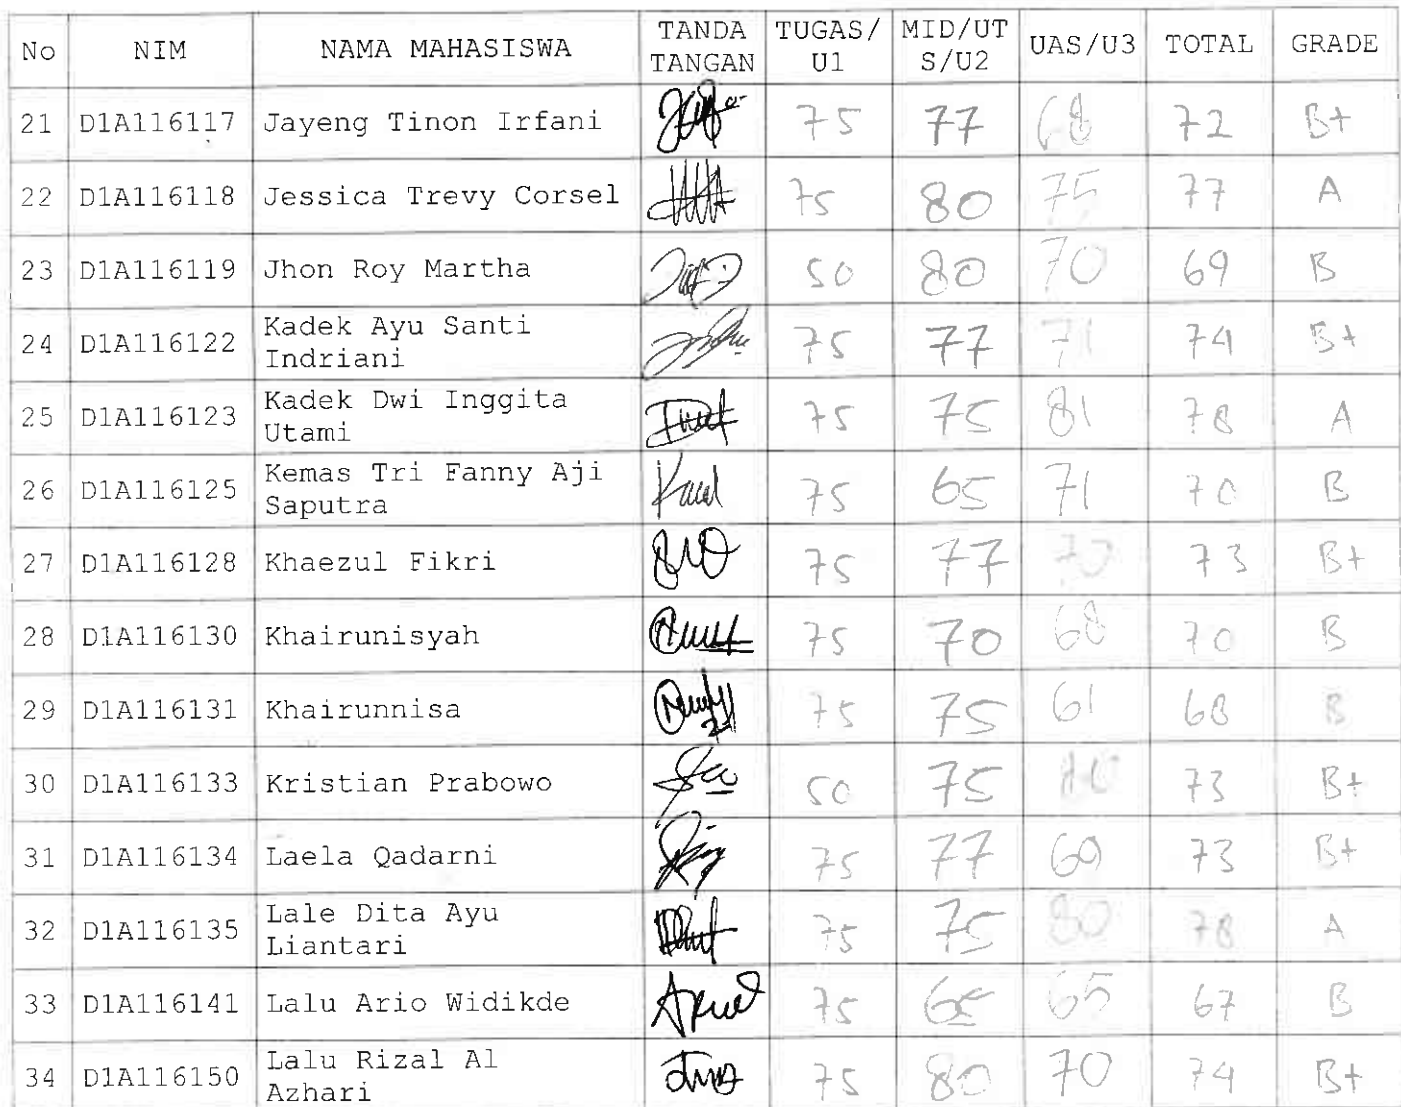 No NIM NAMA MAHASISWA TANDA TANGAN TUGAS/U1 MID/UTS/U2 UAS/U3 TOTAL GRADE
21 D1A116117 Jayeng Tinon Irfani 75 77 68 72 B+
22 D1A116118 Jessica Trevy Corsel 75 80 75 77 A
23 D1A116119 Jhon Roy Martha 50 80 70 69 B
24 D1A116122 Kadek Ayu Santi Indriani 75 77 71 74 B+
25 D1A116123 Kadek Dwi Inggita Utami 75 75 81 78 A
26 D1A116125 Kemas Tri Fanny Aji Saputra 75 65 71 70 B
27 D1A116128 Khaezul Fikri 75 77 70 73 B+
28 D1A116130 Khairunisyah 75 70 68 70 B
29 D1A116131 Khairunnisa 75 75 61 68 B
30 D1A116133 Kristian Prabowo 50 75 73 B+
31 D1A116134 Laela Qadarni 75 77 69 73 B+
32 D1A116135 Lale Dita Ayu Liantari 75 75 80 78 A
33 D1A116141 Lalu Ario Widikde 75 65 65 67 B
34 D1A116150 Lalu Rizal Al Azhari 75 80 70 74 B+